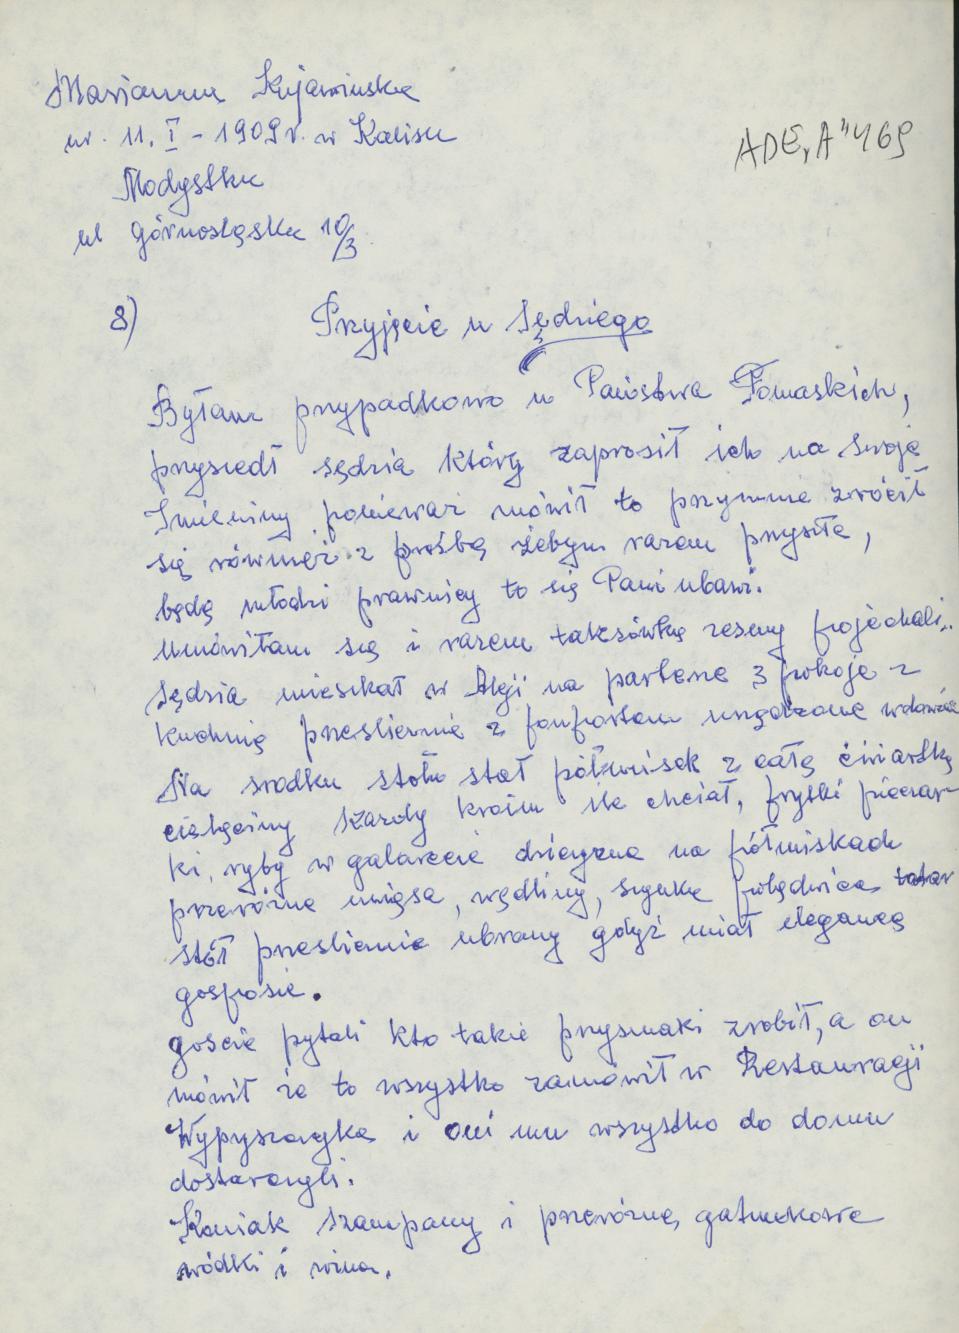 Marianna Kujawinska
ur. 11. I - 1909 r. w Kaliszu
ADE, A" 469
Modystka
ul górnosląska 10/3
8) Przyjęcie u Sędziego
Byłam przypadkowo u Państwa Tomaskich,
przyszedł sędzia który zaprosił ich na swoje
Imieniny ponieważ mówił to przyjmie zwrócił
się również z prośbą żebym razem przyszła,
będą młodzi prawnicy to się Pani ubawi.
Umówiłam się i razem taksówką żesmy pojechali.
Sędzia mieszkał w Aleji na parterze 3 pokoje z
kuchnią przeslicznie z komfortem urządzone
Na srodku stołu stał półmisek z całą ćwiartką
cielęciny każdy kroił ile chciał, frytki pieczar-
ki, ryby w galarecie dziczyzna na półmiskach
przeróżne mięsa, wędliny, szynka polędwica tatar
stół przeslicznie ubrany gdyż miał elegancą
gosposie.
goscie pytali kto takie przysmaki zrobił, a on
mówił że to wszystko zamówił w Restauracji
Wypyszczyka i oni mu wszystko do domu
dostarczyli.
Koniak szampany i przeróżne gatunkowe
wódki i wina.